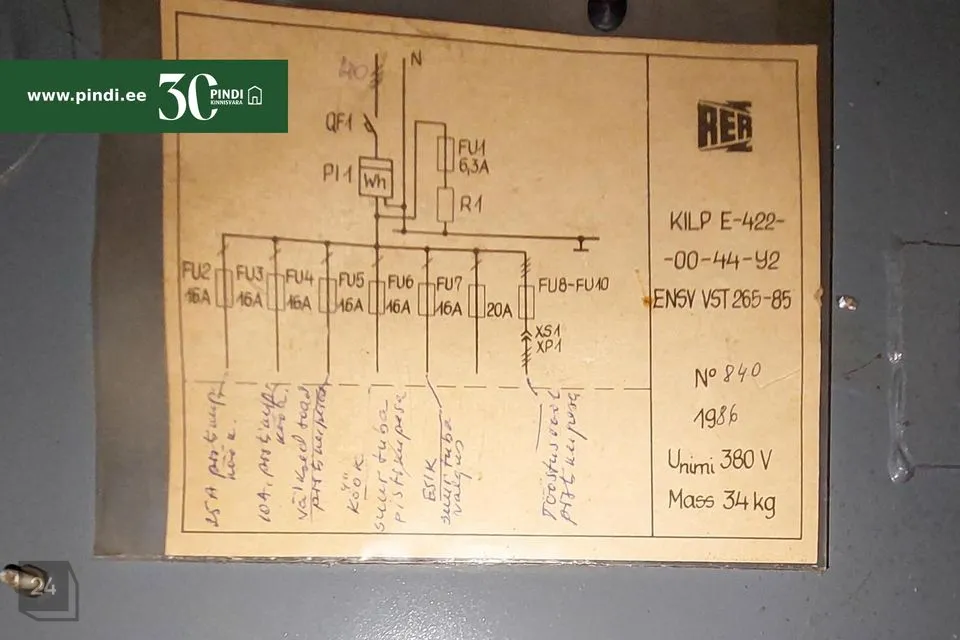 www.pindi.ee
30
PINDI
KINNISVARA
40
N
QF1
PI1
Wh
FU1
6,3A
R1
FU2
16A
FU3
16A
FU4
16A
FU5
16A
FU6
16A
FU7
16A
20A
FU8-FU10
XS1
XP1
köök
10A
köök
väiksed toad
köök
suurtuba
pistikupesa
ESIK
suurtuba
valgus
Tööstusvool
pistikupesa
RER
KILP E-422-
-00-44-У2
ENSV VST 265-85
No 840
1986
Unimi 380 V
Mass 34 kg
24